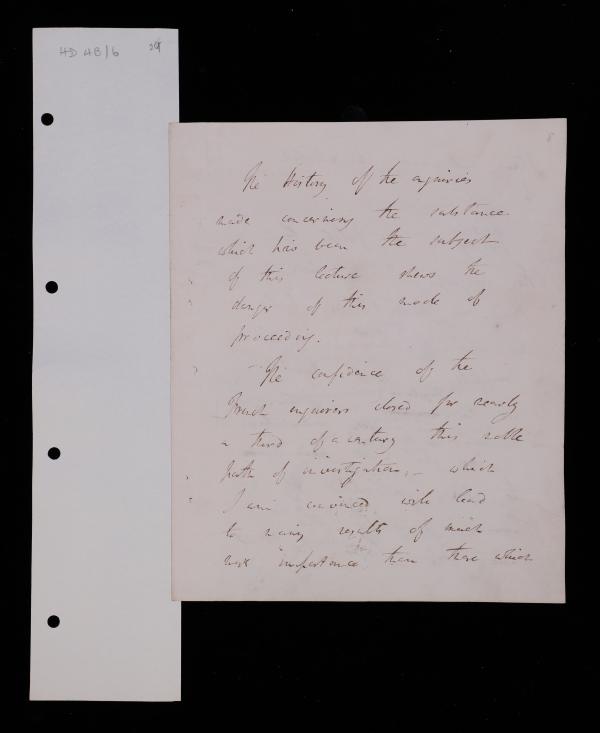 HD 4B/6
8
The History of the enquiries
made concerning the substance
which has been the subject
of this lecture shews the
danger of this mode of
proceeding.
The confidence of the
French enquirers closed for nearly
a third of a century this noble
path of investigation, – which
I am convinced will lead
to many results of much
more importance than those which